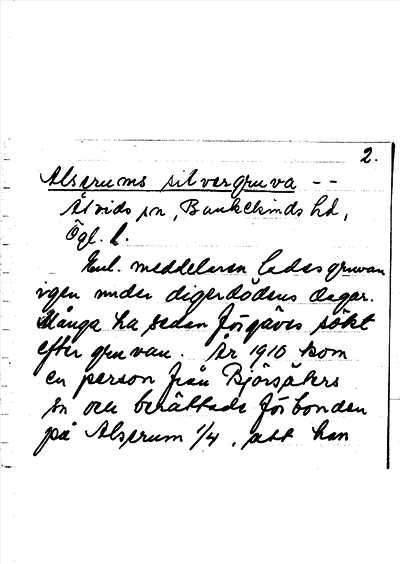 2.
Alserums silvergruva --
Åtvids sn, Bankekinds hd,
Ögl. l.
Enl. meddelaren lades gruvan
igen under digerdödens dagar.
Många ha sedan förgäves sökt
efter gruvan. År 1910 kom
en person från Björsäters
sn och berättade för bonden
på Alserum 1/4, att han